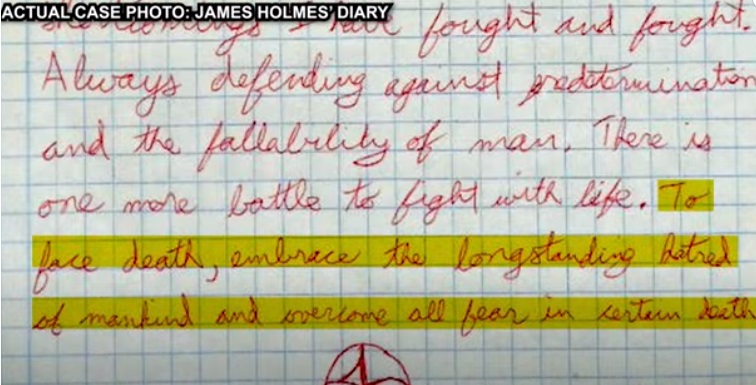 ACTUAL CASE PHOTO: JAMES HOLMES' DIARY
I have fought and fought.
Always defending against predetermination
and the fallability of man. There is
one more battle to fight with life. To
face death, embrace the longstanding hatred
of mankind and overcome all fear in certain death